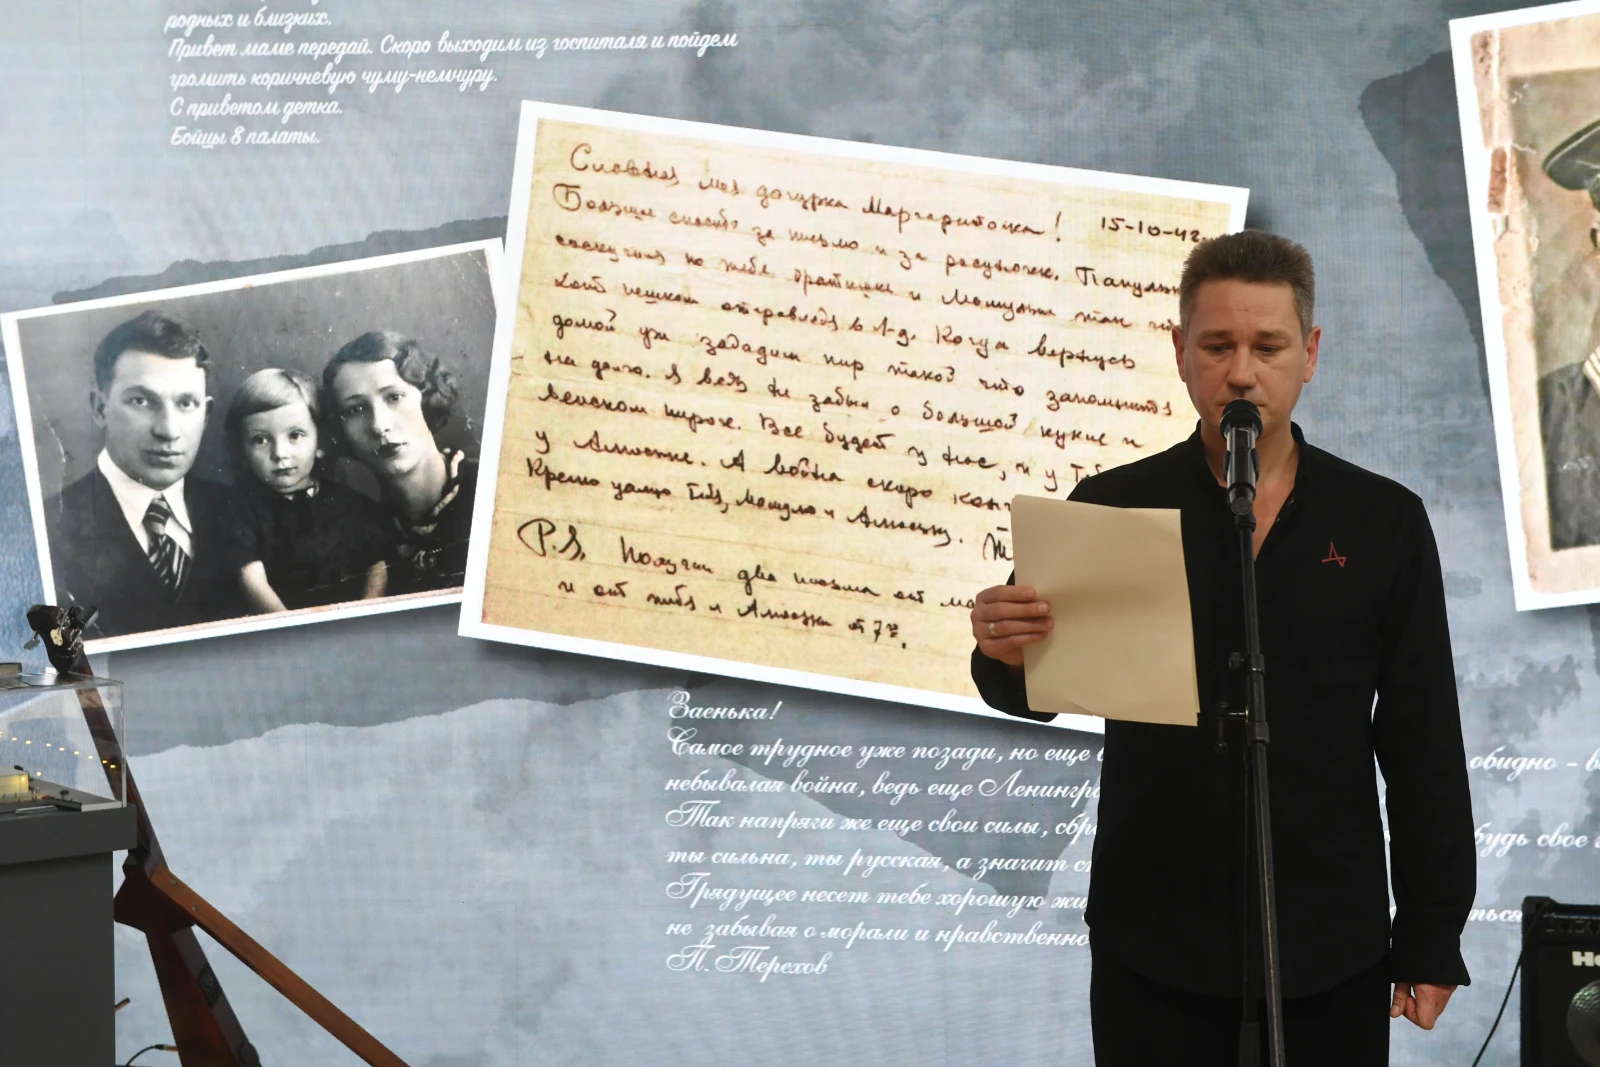 родных и близких.
Привет маме передай. Скоро выходим из госпиталя и пойдем
громить коричневую чуму-немчуру.
С приветом детка.
Бойцы 8 палаты.
Славная моя дочурка Маргариточка! 15-10-42г.
Большое спасибо за письмо и за рисуночек. Папулька
соскучился по тебе братишке и Мамульке так что
хоть пешком отправляйся в Л-д. Когда вернусь
домой уж зададим пир такой что запомнится
на долго. Я ведь не забыл о большой кукле и
венском пироге. Все будет у нас, и у
у Алюськи. А война скоро
Крепко целую Тебя, мамулю и Алюську.
P.S. Получил два письма от
и от тебя и Алюськи от 7го.
Заенька!
Самое трудное уже позади, но еще
небывалая война, ведь еще
Так напряги же еще свои силы,
ты сильна, ты русская, а значит
Грядущее несет тебе хорошую
не забывая о морали и
П. Терехов
обидно -
будь свое